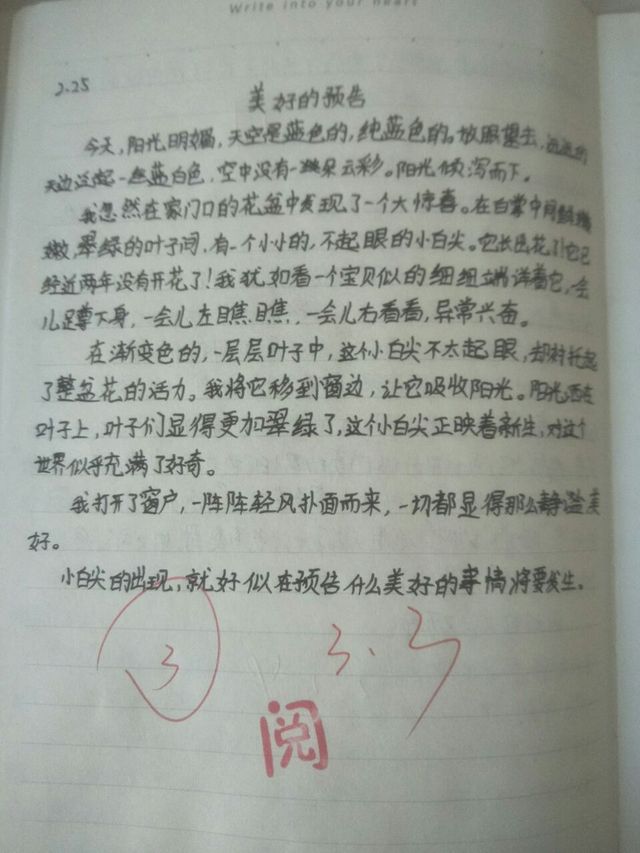 Write into your heart
2.25
美好的预告
今天,阳光明媚,天空是蓝色的,纯蓝色的。放眼望去,远远的
天边泛起一丝蓝白色,空中没有一朵云彩。阳光倾泻而下。
我忽然在家门口的花盆中发现了一个大惊喜。在白掌中间
嫩,翠绿的叶子间,有一个小小的,不起眼的小白尖。它长出花了!它已
经近两年没有开花了!我犹如看一个宝贝似的细细端详着它,一会
儿蹲下身,一会儿左瞧瞧,一会儿右看看,异常兴奋。
在渐变色的,一层层叶子中,这个小白尖不太起眼,却衬托起
了整盆花的活力。我将它移到窗边,让它吸收阳光。阳光洒在
叶子上,叶子们显得更加翠绿了,这个小白尖正映着新生,对这个
世界似乎充满了好奇。
我打开了窗户,一阵阵轻风扑面而来,一切都显得那么静谧美
好。
小白尖的出现,就好似在预告什么美好的事情将要发生。
3
3.3
阅